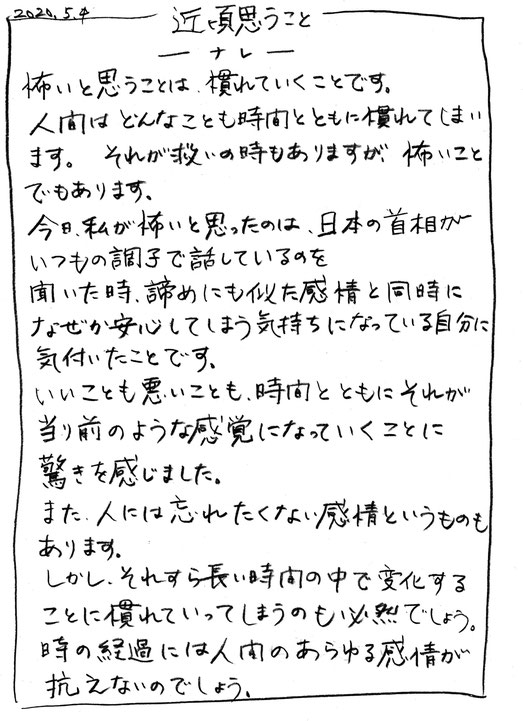 2020.5.4
近頃思うこと
— ナレ —
怖いと思うことは、慣れていくことです。
人間はどんなことも時間とともに慣れてしまい
ます。 それが救いの時もありますが、怖いこと
でもあります。
今日、私が怖いと思ったのは、日本の首相が
いつもの調子で話しているのを
聞いた時、諦めにも似た感情と同時に
なぜか安心してしまう気持ちになっている自分に
気付いたことです。
いいことも悪いことも、時間とともにそれが
当り前のような感覚になっていくことに
驚きを感じました。
また、人には忘れたくない感情というものも
あります。
しかし、それすら長い時間の中で変化する
ことに慣れていってしまうのも必然でしょう。
時の経過には人間のあらゆる感情が
抗えないのでしょう。